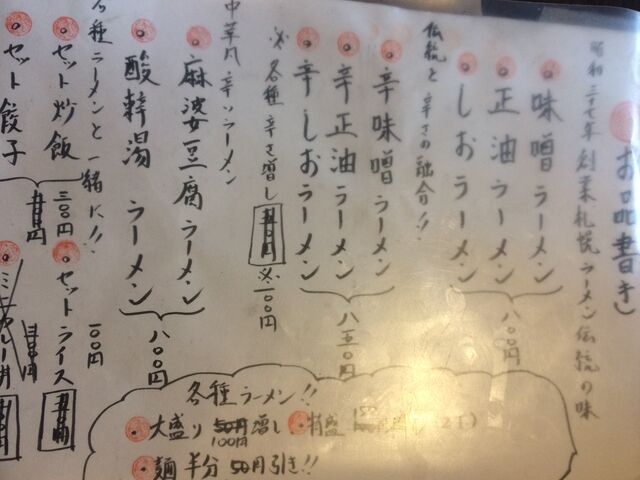 お品書き
昭和三十七年創業札幌ラーメン伝統の味
味噌ラーメン
正油ラーメン
しおラーメン
八〇〇円
伝統と辛さの融合!!
辛味噌ラーメン
辛正油ラーメン
辛しおラーメン
八五〇円
※各種辛さ増し
※一〇〇円
中華風辛いラーメン
麻婆豆腐ラーメン
酸辣湯ラーメン
八〇〇円
各種ラーメンと一緒に!!
セット炒飯
セット餃子
三〇〇円
セットライス
一〇〇円
各種ラーメン!!
大盛り 50円増し
100円
特盛
麺半分 50円引き!!